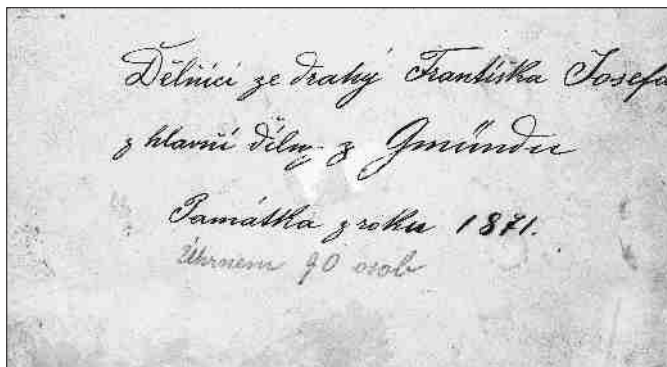 Dělníci ze dráhy Františka Josefa
z hlavní dílny z Gmündu
Památka z roku 1871.
Úhrnem 90 osob